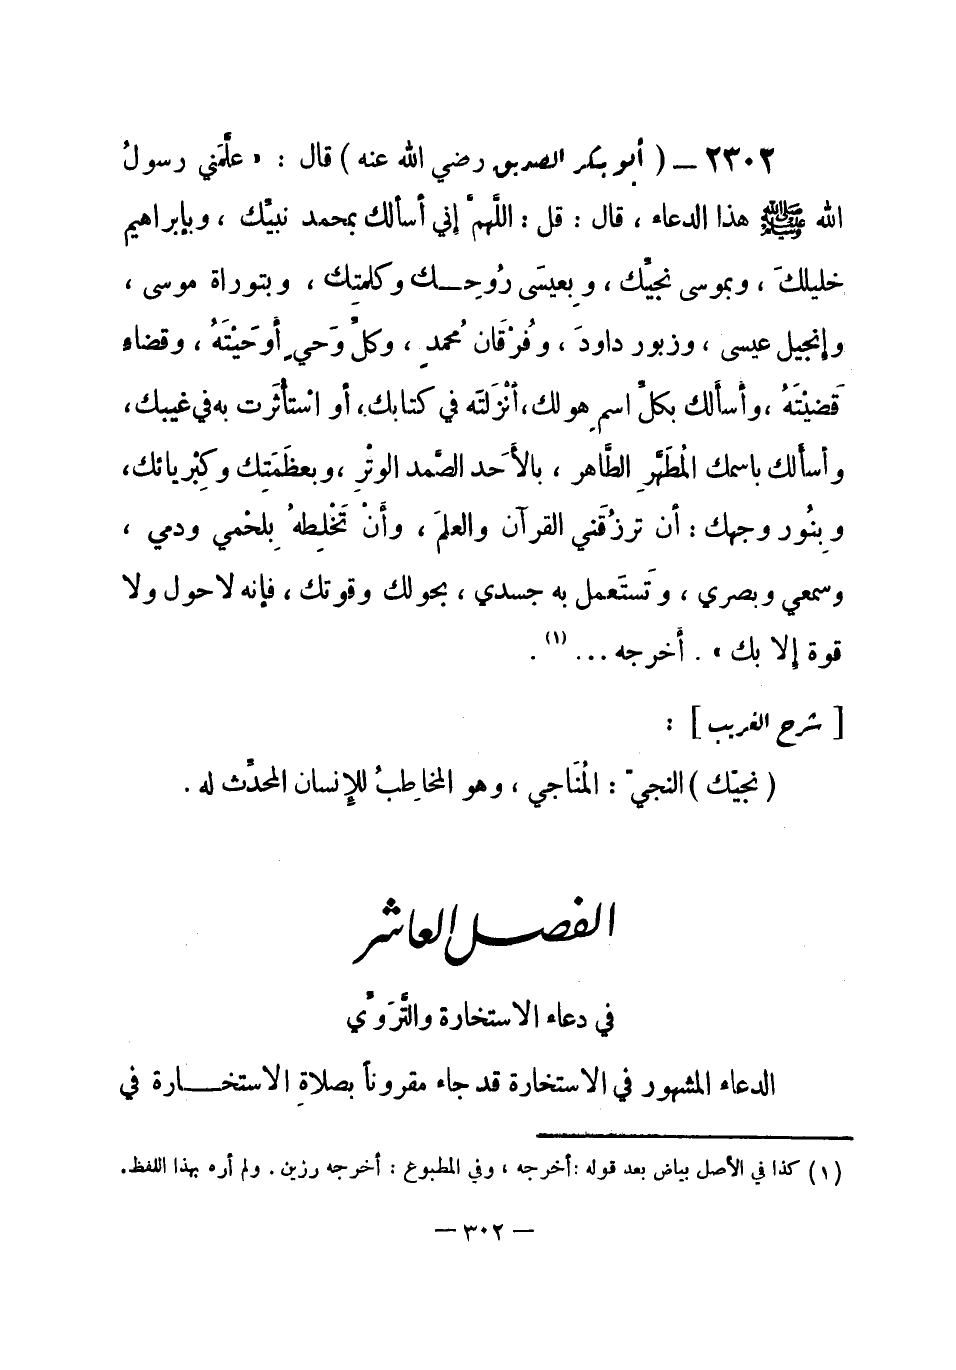 ٢٣٠٢ ــ ( أبو بكر الصديق رضي الله عنه ) قال : « علَّمَني رسولُ
الله ﷺ هذا الدعاء ، قال : قل : اللَّهمَّ إني أسألك بمحمد نبيِّك ، وبإبراهيم
خليلكَ ، وبموسى نجيِّك ، وبِعيسَى رُوحِـــك وكلمتِك ، وبتوراة موسى ،
وإنجيل عيسى ، وزبور داودَ ، وفُرْقَان مُحمدٍ ، وكلِّ وَحيٍ أَوحَيْتَهُ ، وقضاءٍ
قَضيْتَهُ ، وأَسأَلك بكلِّ اسمٍ هو لك، أنْزَلتَه في كتابك، أو اسْتأْثَرت به في غيبك،
وأسأَلك باسمك المُطَهَّرِ الطَّاهر ، بالأَحد الصَّمد الوتْرِ ، وبعظَمَتِك وكِبْريائك،
وبِنُور وجهك : أن ترزُقَني القرآن والعلمَ ، وأَنْ تَخْلِطهُ بِلحْمي ودمي ،
وسمعي وبصري ، وتَستَعمل به جسدي ، بحولك وقوتك ، فإنه لا حول ولا
قوة إلا بك » . أَخرجه ... (١) .
[ شرح الغريب ] :
( نجيّك ) النجيّ : المُنَاجي ، وهو المخاطِبُ للإنسان المحدِّث له .
الفصل العاشر
في دعاء الاستخارة والتَّرَوِّي
الدعاء المشهور في الاستخارة قد جاء مقروناً بصلاةِ الاستخـــارة في
(١) كذا في الأصل بياض بعد قوله : أخرجه ، وفي المطبوع : أخرجه رزين . ولم أره بهذا اللفظ .
— ٣٠٢ —